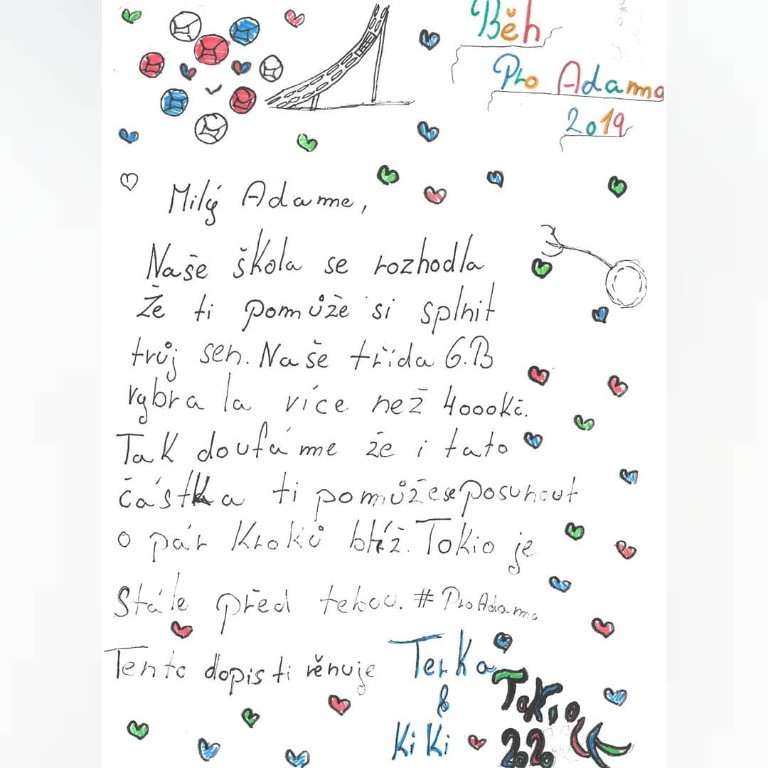 Běh
Pro Adama
2019
Milý Adame,
Naše škola se rozhodla
že ti pomůže si splnit
tvůj sen. Naše třída 6.B
vybrala více než 4000kč.
Tak doufáme že i tato
částka ti pomůže se posunout
o pár kroků blíž. Tokio je
stále před tebou. #ProAdama
Tento dopis ti věnuje Terka
&
KiKi
Tokio
2020